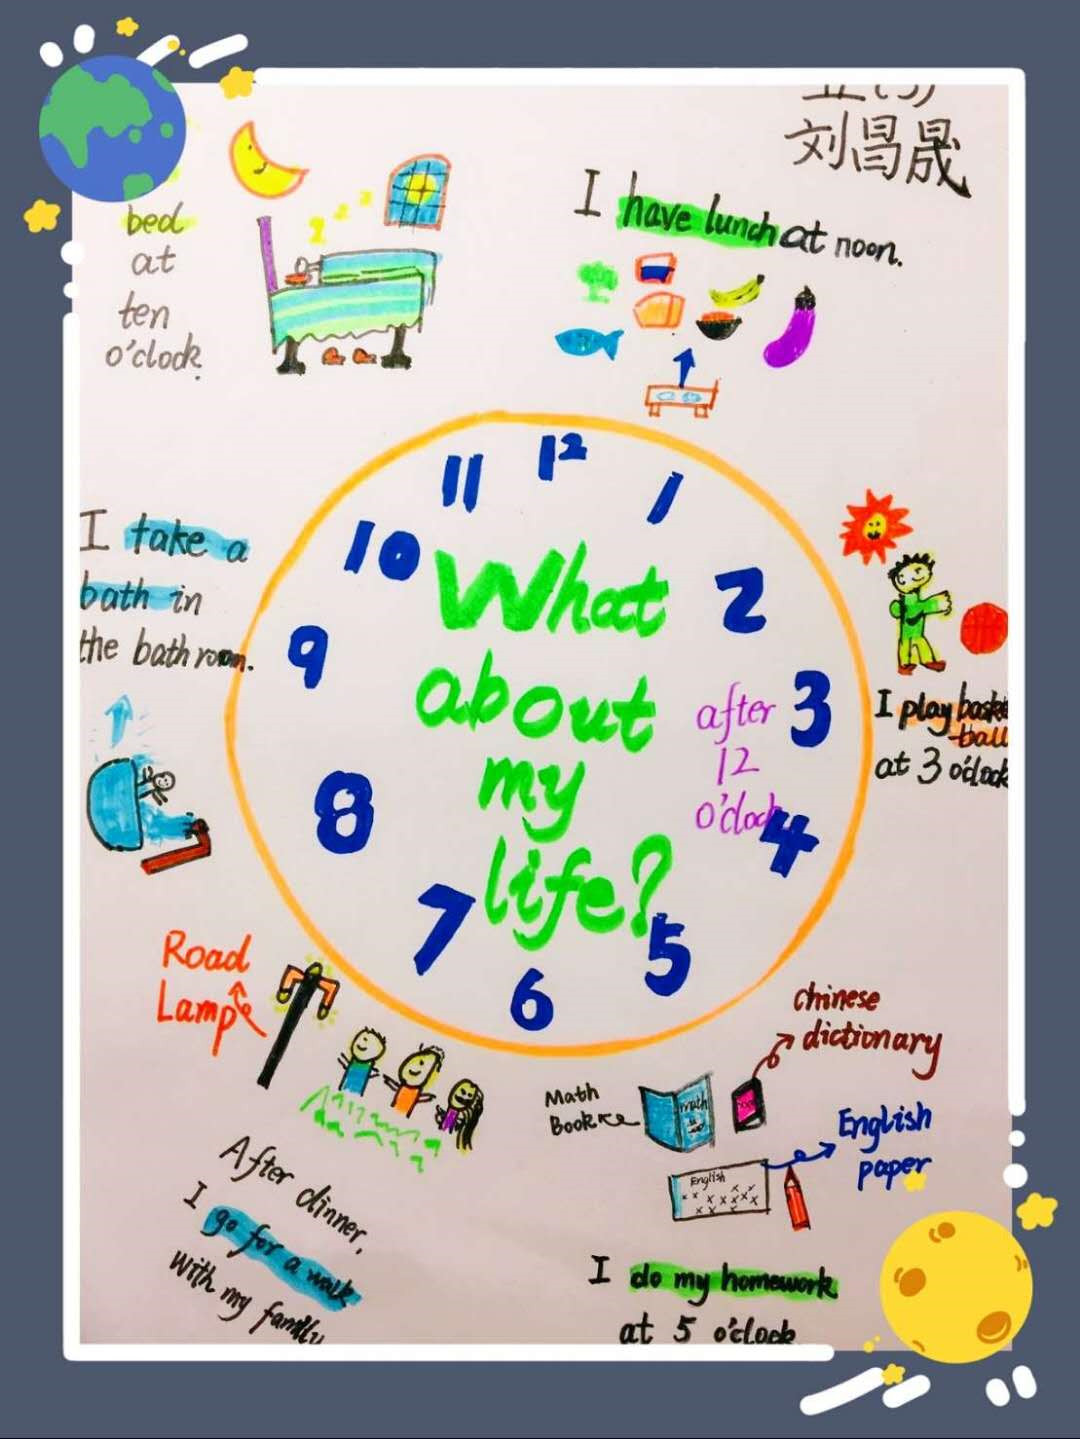 刘昌晟
bed
at
ten
o'clock.
I have lunch at noon.
I take a
bath in
the bathroom.
11
12
1
10
2
9
3
8
4
7
5
6
What
about
my
life?
after
12
o'clock
I play basket
-ball
at 3 o'clock
Road
Lamp
After dinner,
I go for a walk
with my family
chinese
dictionary
Math
Book
math
English
paper
English
I do my homework
at 5 o'clock